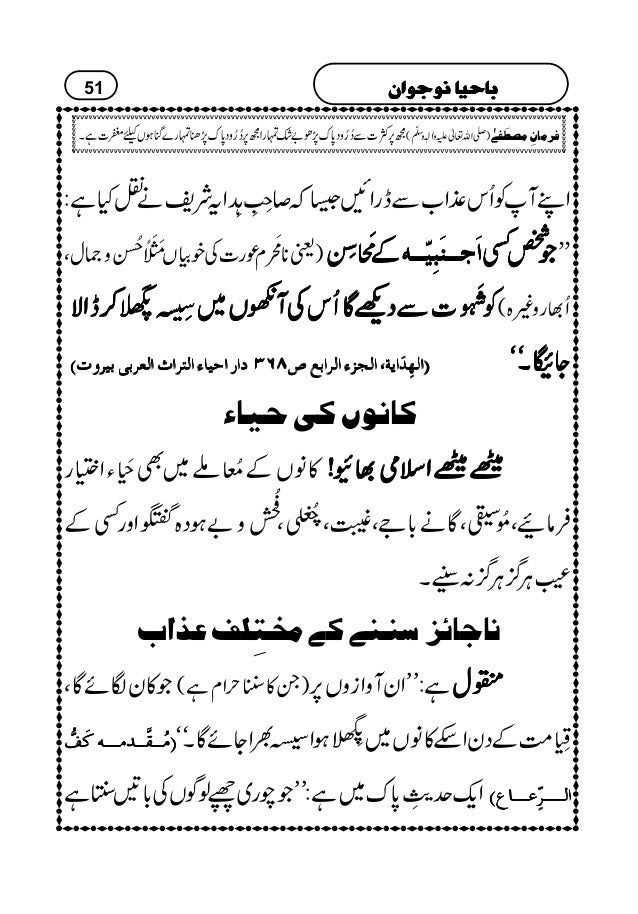 باحیا نوجوان
51
فرمانِ مصطفےٰ (صلی اللہ تعالیٰ علیہ واٰلہٖ وسلم) مجھ پر کثرت سے دُرُودِ پاک پڑھو بے شک تمہارا مجھ پر دُرُودِ پاک پڑھنا تمہارے گناہوں کیلئے مغفرت ہے۔
اپنے آپ کو اُس عذاب سے ڈرائیں جیسا کہ صاحِبِ ہِدایہ شریف نے نقل کیا ہے:
’’جو شخص کسی اَجـنَبِیّـہ کے مَحاسِن (یعنی نامَحرم عورت کی خوبیاں مَثَلاً حُسن و جمال،
اُبھار وغیرہ) کو شَہوت سے دیکھے گا اُس کی آنکھوں میں سِیسہ پگھلا کر ڈالا
جائیگا۔‘‘ (الہِدَایۃ، الجزء الرابع ص۳۶۸ دار احیاء التراث العربی بیروت)
کانوں کی حیاء
میٹھے میٹھے اسلامی بھائیو! کانوں کے مُعاملے میں بھی حَیاء اختیار
فرمائیے، مُوسیقی، گانے باجے، غیبت، چُغلی، فُحش و بے ہودہ گفتگو اور کسی کے
عیب ہرگز ہرگز نہ سنیے۔
ناجائز سننے کے مختلِف عذاب
منقول ہے: ’’ان آوازوں پر (جن کا سننا حرام ہے) جو کان لگائے گا،
قِیامت کے دن اسکے کانوں میں پِگھلا ہوا سیسہ بھرا جائے گا۔‘‘ (مُـقَّـدمـہ کَفُّ
الـرِّعـاع) ایک حدیثِ پاک میں ہے: ’’جو چوری چھپے لوگوں کی باتیں سنتا ہے